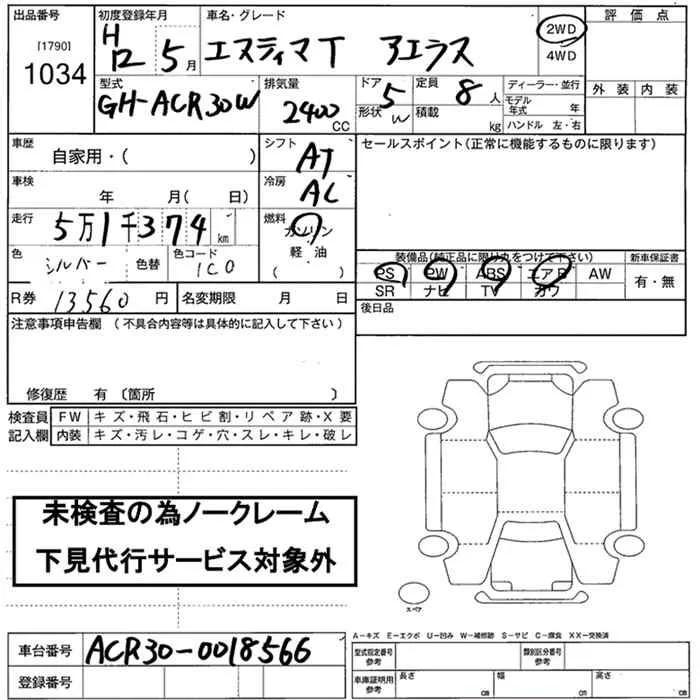 出品番号 初度登録年月 車名・グレード 評価点
[1790] H12 5月 エスティマT アエラス 2WD
1034 4WD
型式 排気量 ドア 定員 ディーラー・並行 外装 内装
GH-ACR30W 2400CC 5 8人 モデル年式 年
形状 W 積載 kg ハンドル 左・右
車歴 シフト セールスポイント(正常に機能するものに限ります)
自家用・( ) AT
車検 冷房
年 月( 日) AC
走行 燃料
5万1千374km ガソリン
色 色コード 軽油 装備品(純正品に限り丸をつけて下さい) 新車保証書
シルバー 色替 1C0 ( ) PS PW ABS エアB AW 有・無
SR ナビ TV カワ
R券 13560円 名変期限 月 日 後日品
注意事項申告欄 (不具合内容等は具体的に記入して下さい)
修復歴 有 〔箇所 〕
検査員 FW キズ・飛石・ヒビ割・リペア跡・X要
記入欄 内装 キズ・汚レ・コゲ・穴・スレ・キレ・破レ
未検査の為ノークレーム
下見代行サービス対象外
スペア
A-キズ E-エクボ U-凹み W-補修跡 S-サビ C-腐食 XX-交換済
車台番号 ACR30-0018566 型式指定番号 参考 類別区分番号 参考
登録番号 車庫証明用 参考 長さ cm 幅 cm 高さ cm